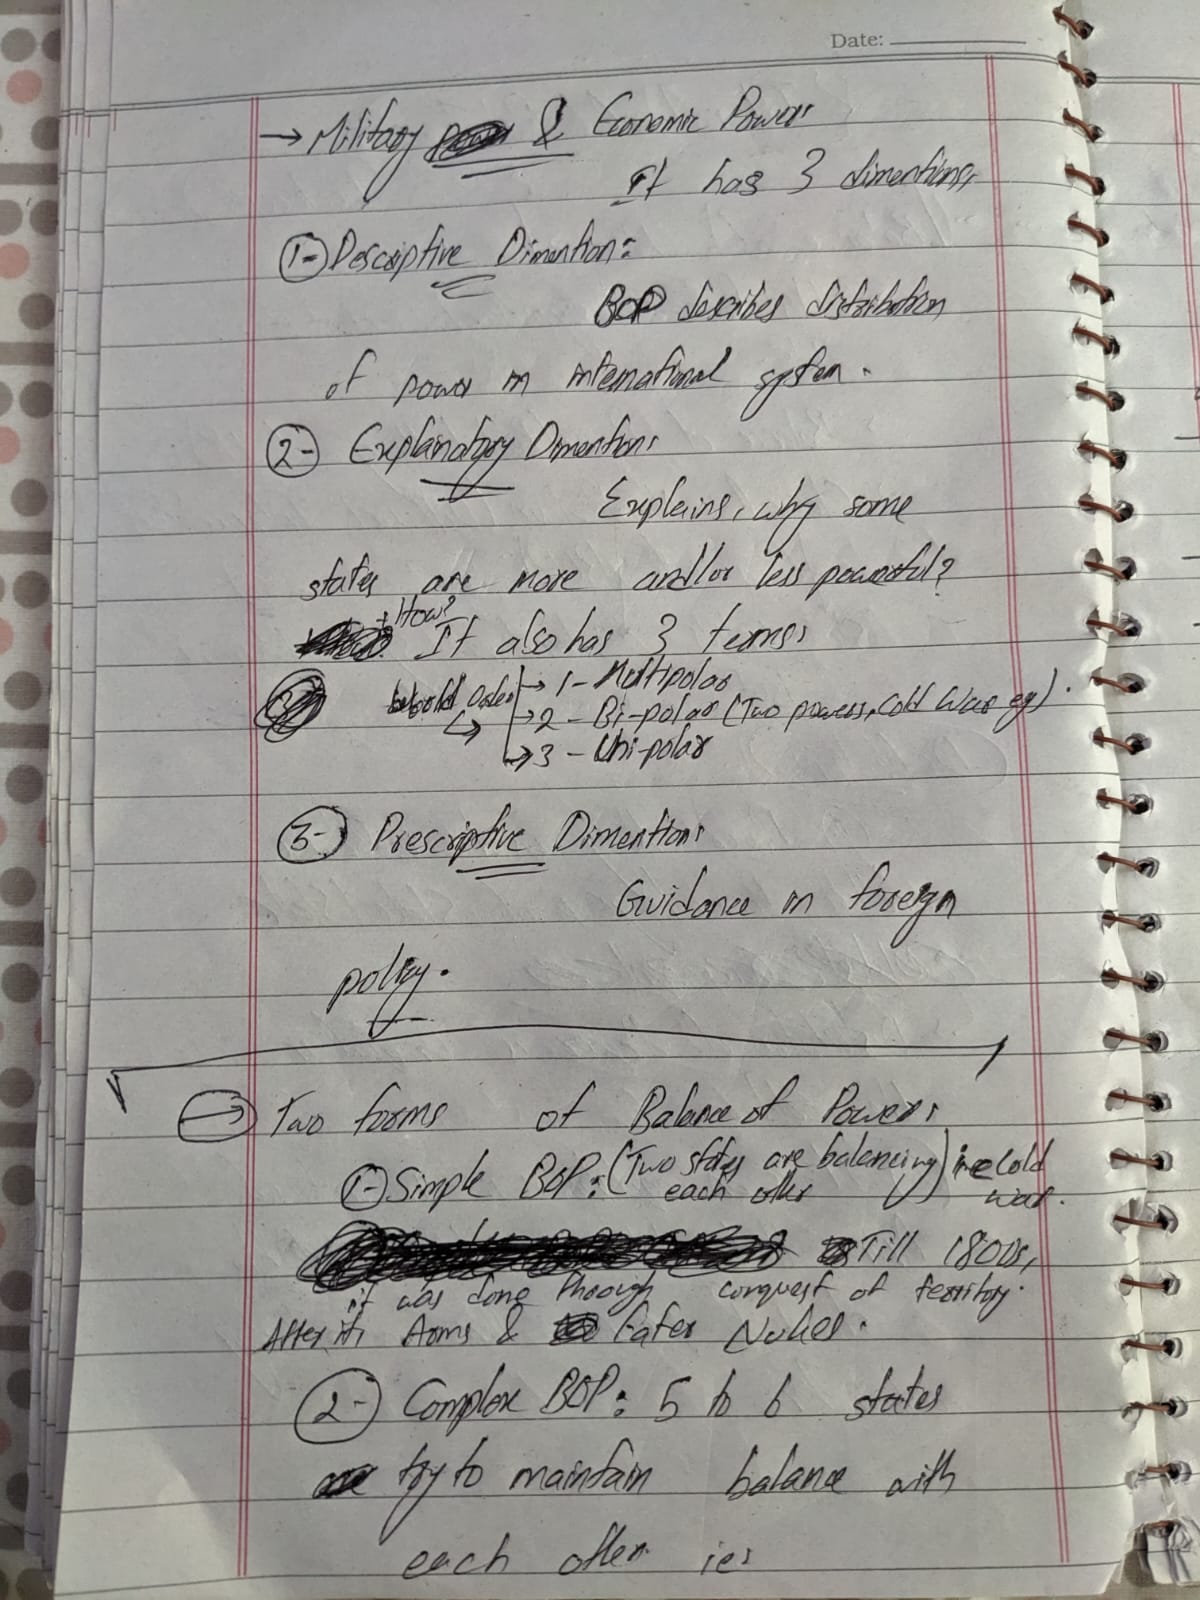 Date:
→ Military & Economic Power:
It has 3 dimentions,
1- Descriptive Dimention:
BOP describes distribution
of power in international system.
2- Explanatory Dimention:
Explains, why some
states are more and/or less powerful?
+ How?
It also has 3 terms:
World Order → 1- Multipolar
→ 2 - Bi-polar (Two powers, Cold War eg).
→ 3 - Uni-polar
3- Prescriptive Dimention:
Guidance in foreign
policy.
→ Two forms of Balance of Power:
1- Simple BOP: (Two states are balancing each other) i.e Cold war.
Till 1800s,
it was done through conquest of territory.
After it, Arms & Later Nukes.
2- Complex BOP: 5 to 6 states
try to maintain balance with
each other ie: